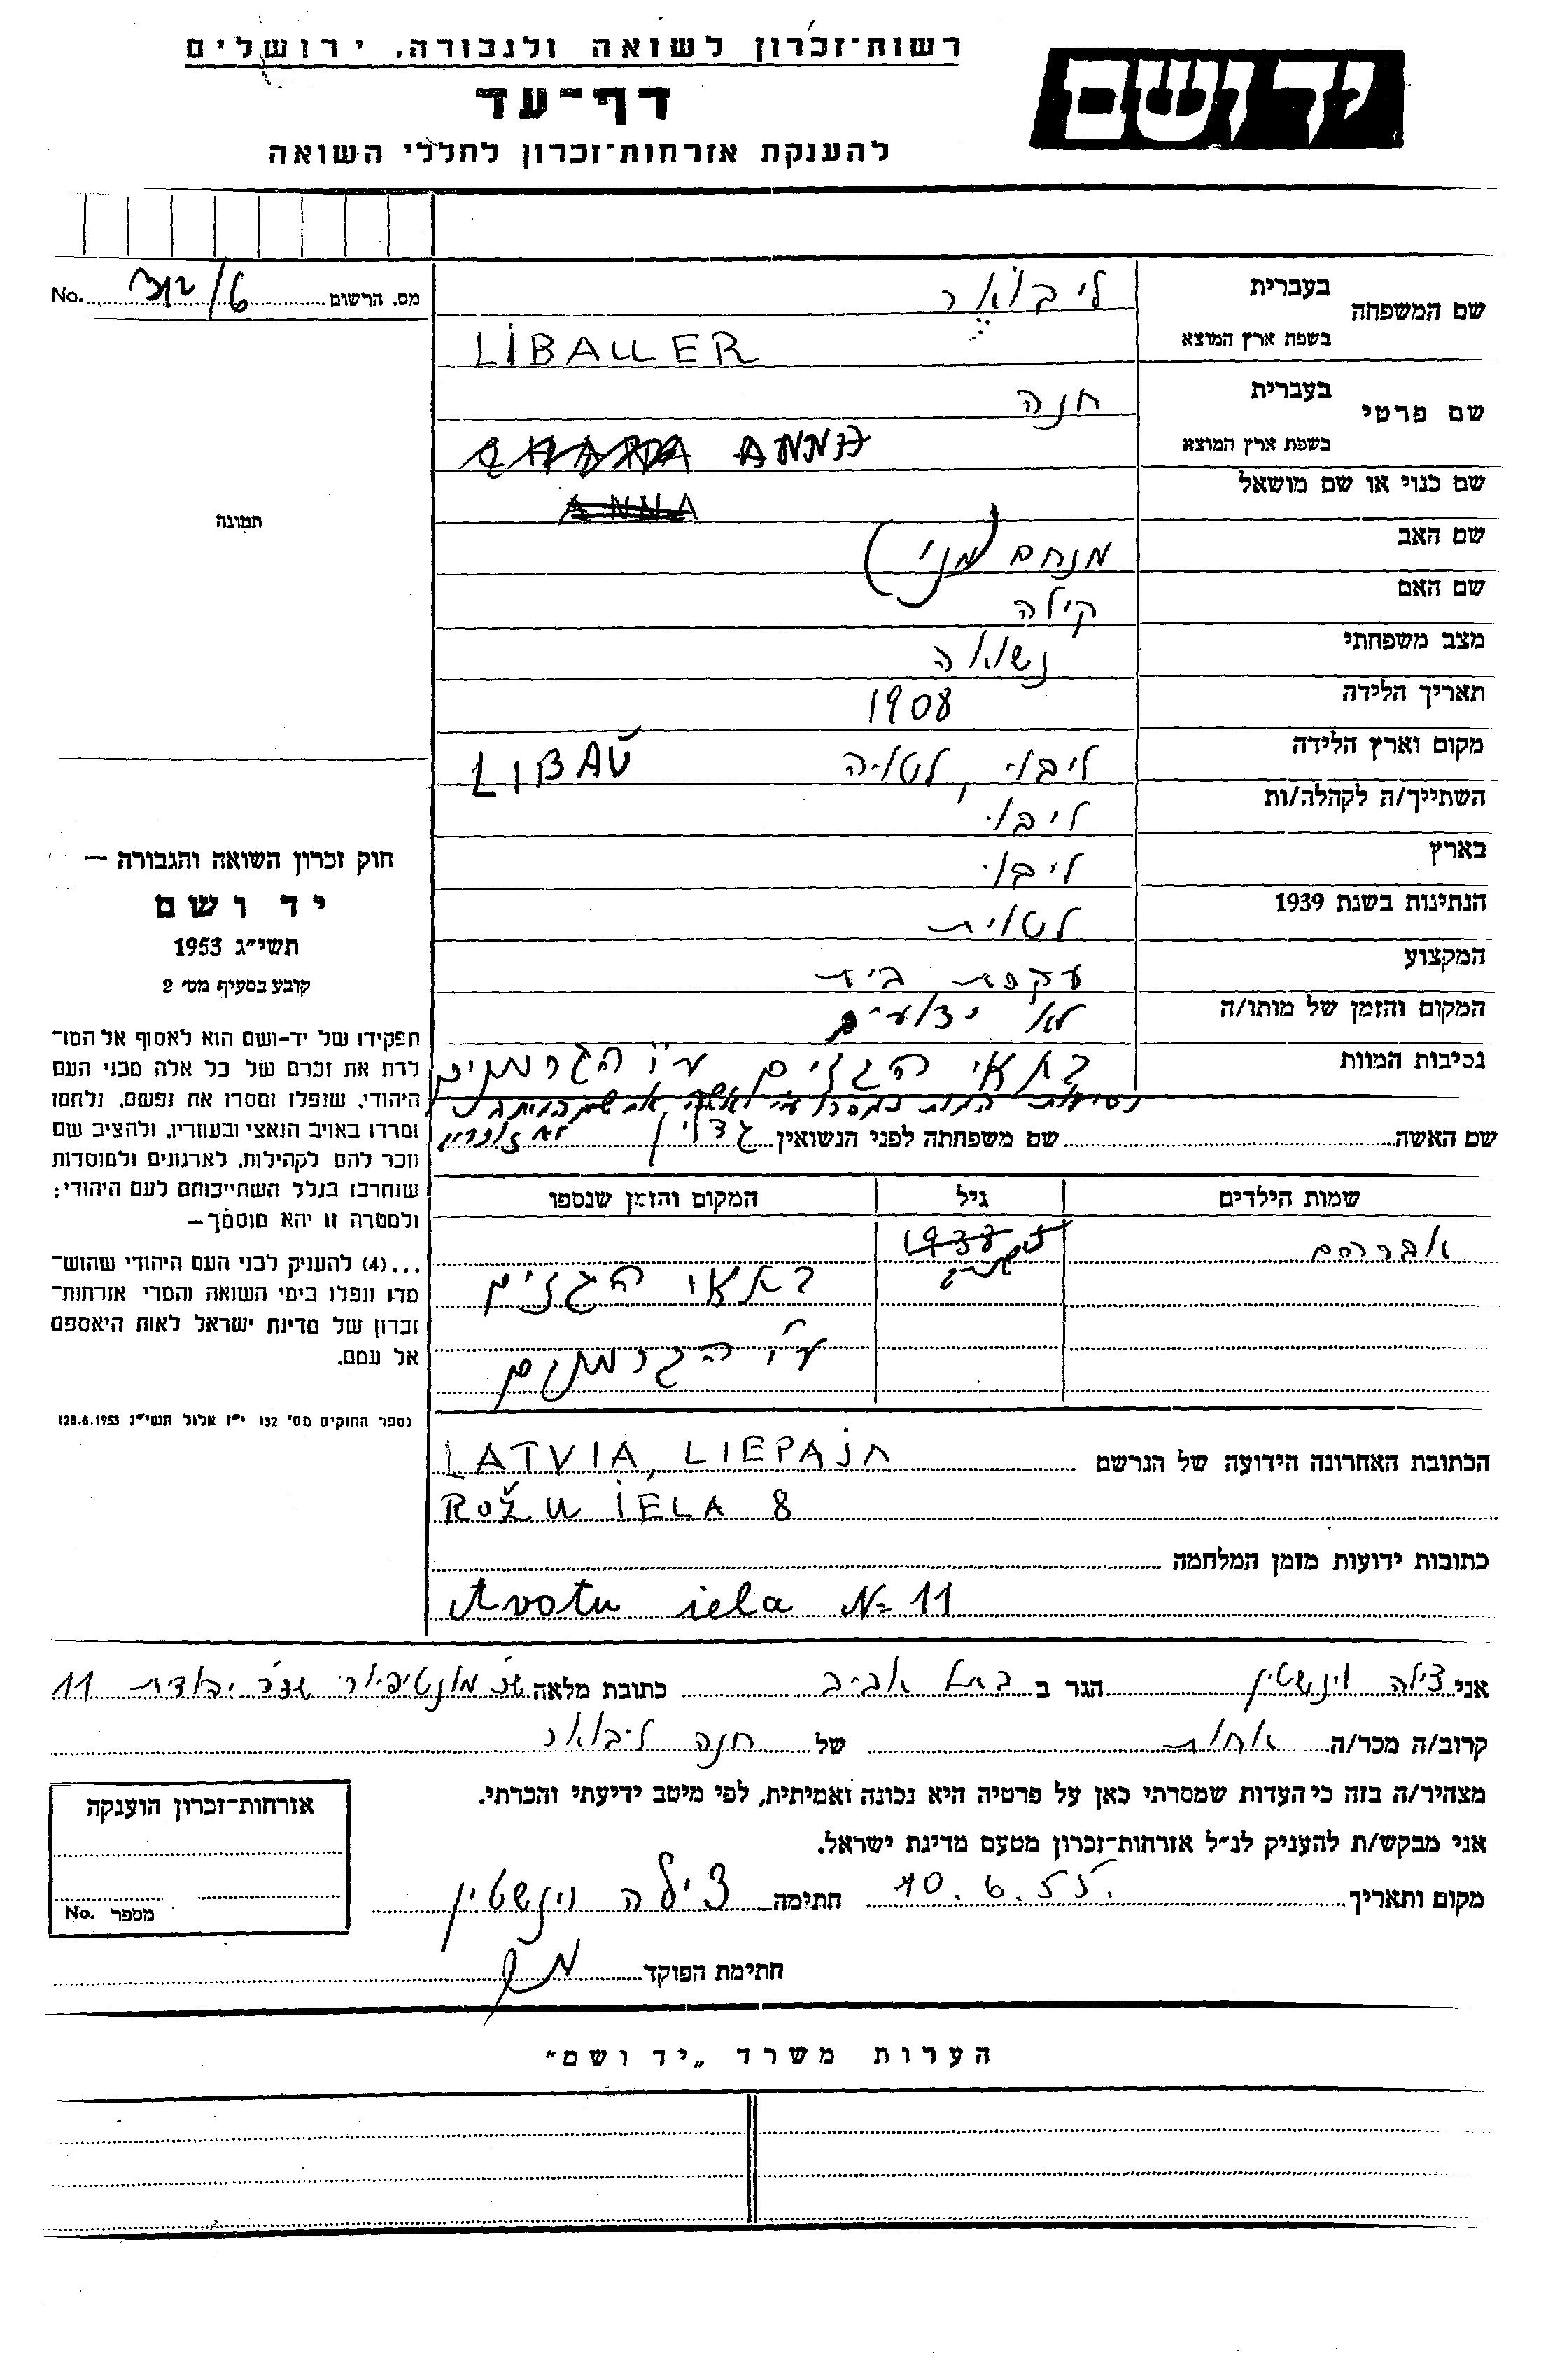 רשות־זכרון לשואה ולגבורה. ירושלים
יד ושם
דף־עד
להענקת אזרחות־זכרון לחללי השואה
מס. הרשום No.
שם המשפחה
בעברית ליבואר
בשפת ארץ המוצא LIBAUER
שם פרטי
בעברית חנה
בשפת ארץ המוצא ANNA
שם כנוי או שם מושאל ANNA
שם האב מנחם (מני)
שם האם קילה
מצב משפחתי נשואה
תאריך הלידה 1908
מקום וארץ הלידה ליבוי, לטויה LIBAŬ
השתייך/ה לקהלה/ות ליבוי
בארץ ליבוי
הנתינות בשנת 1939 לטוית
המקצוע עקרת בית
המקום והזמן של מותו/ה לא ידועים
נסיבות המוות בתאי הגזים ע"י הגרמנים
נסיבות המות נמסרו ע"י
שם האשה שם משפחתה לפני הנשואין
שמות הילדים גיל המקום והזמן שנספו
אברהם 1937 בתאי הגזים
ע"י הגרמנים
תמונה
חוק זכרון השואה והגבורה —
יד ושם
תשי״ג 1953
קובע בסעיף מס׳ 2
תפקידו של יד-ושם הוא לאסוף אל המו־
לדת את זכרם של כל אלה מבני העם
היהודי, שנפלו ומסרו את נפשם, נלחמו
ומרדו באויב הנאצי ובעוזריו, ולהציב שם
וזכר להם לקהילות, לארגונים ולמוסדות
שנחרבו בגלל השתייכותם לעם היהודי;
ולמטרה זו יהא מוסמך—
...(4) להעניק לבני העם היהודי שהוש־
מדו ונפלו בימי השואה והמרי אזרחות־
זכרון של מדינת ישראל לאות היאספם
אל עמם.
(ספר החוקים מס׳ 132 י״ז אלול תשי״ג 28.8.1953)
הכתובת האחרונה הידועה של הנרשם LATVIA, LIEPAJA
ROŽU IELA 8
כתובות ידועות מזמן המלחמה
Avotu iela № 11
אני צילה וינשטין הגר ב בתל אביב כתובת מלאה שכ' מונטיפיורי שד' יהודית 11
קרוב/ה מכר/ה אחות של חנה ליבואר
מצהיר/ה בזה כי העדות שמסרתי כאן על פרטיה היא נכונה ואמיתית, לפי מיטב ידיעתי והכרתי.
אני מבקש/ת להעניק לנ״ל אזרחות־זכרון מטעם מדינת ישראל.
מקום ותאריך 10.6.55. חתימה צילה וינשטין
חתימת הפוקד
אזרחות־זכרון הוענקה
מספר No.
הערות משרד „יד ושם״